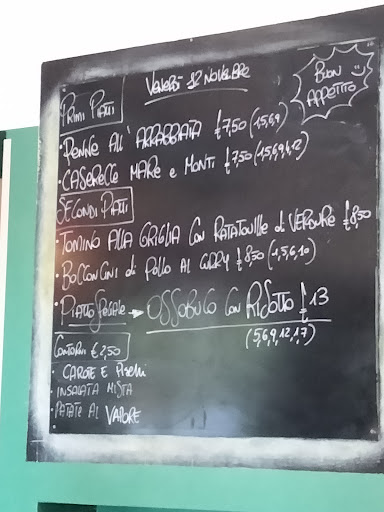 Venerdì 12 Novembre
Buon
Appetito
Primi Piatti
• Penne all'Arrabbiata € 7,50 (1,5,6,9)
• Caserecce Mare e Monti € 7,50 (1,5,6,9,4,12)
Secondi Piatti
• Tomino alla Griglia con Ratatouille di Verdure € 8,50
• Bocconcini di Pollo al Curry € 8,50 (1,5,6,10)
• Piatto Speciale → Ossobuco con Risotto € 13
(5,6,9,12,1,7)
Contorni € 2,50
• Carote e Piselli
• Insalata Mista
• Patate al Vapore